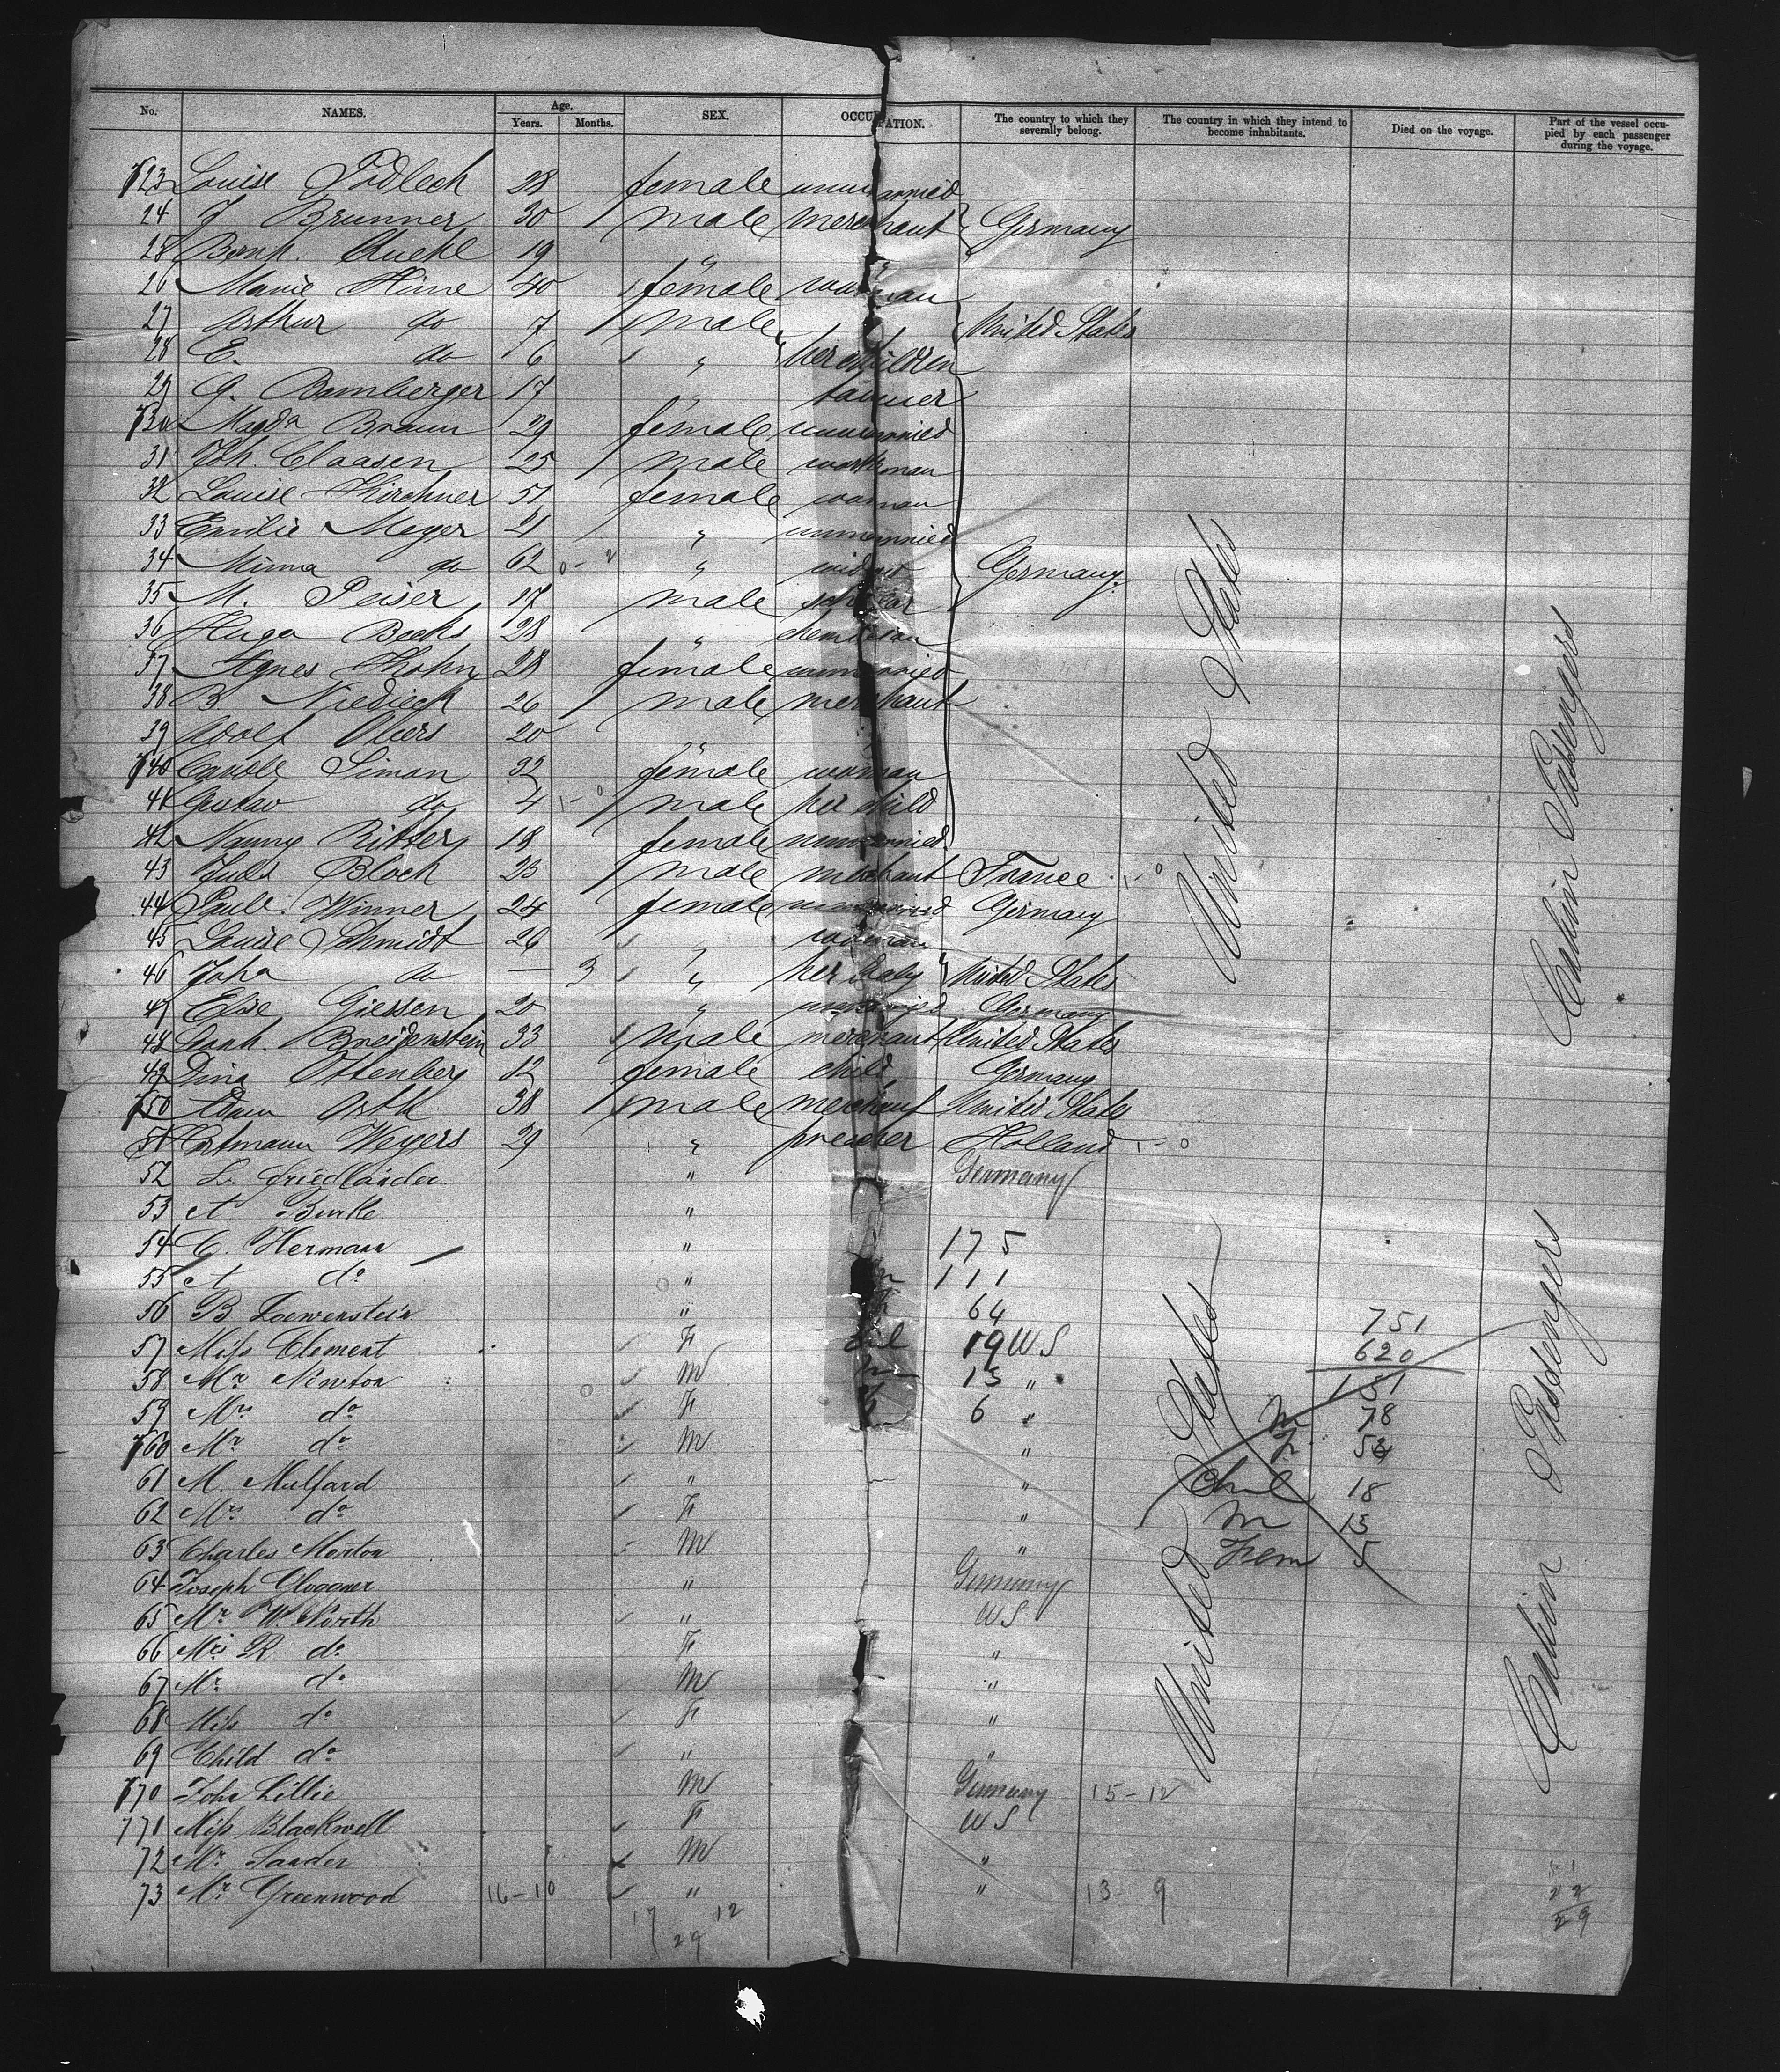 No. NAMES. Age. Years. Months. SEX. OCCUPATION. The country to which they severally belong. The country in which they intend to become inhabitants. Died on the voyage. Part of the vessel occupied by each passenger during the voyage.
723 Louise Podlech 28 female unmarried
24 J Brunner 30 male merchant Germany
25 Bernh. 19 "
26 Marie Hirne 40 female woman
27 Arthur do 7 male United States
28 E. do 6 " her children
29 G. Bamberger 17 " tanner
730 Magda Braun 29 female unmarried
31 Joh. Claasen 25 male workman
32 Louise Kirchner 51 female woman
33 Emilie Meyer 21 " unmarried
34 Minna do 62 0-2 " widow Germany
35 M. Peiser 17 male scholar
36 Hugo Bocks 28 "
37 Agnes Kohn 28 female unmarried
38 B Niedieck 26 male merchant
39 Adolf Olbers 20 " "
740 Carole Simon 32 female woman
41 Gustav do 4 1-0 male her child
42 Nanny Ritter 18 female unmarried
43 Jules Bloch 23 male merchant France 1-0
44 Paul. Winner 24 female unmarried Germany
45 Louise Schmidt 26 " woman
46 Joha do — 3 " her baby United States
47 Elise Giessen 20 " unmarried Germany
48 Breidenstein 33 male merchant United States
49 Dina Ottenberg 12 female child Germany
750 Adam Orth 38 male merchant United States
51 Hartmann Weyers 29 " preacher Holland 1-0
52 L. Friedländer " Germany
53 A Burke "
54 C. Herman " 175
55 A do " m 111
56 B Loewenstein " F 64 751
57 Miss Clement F chil 19 US 620
58 Mr Newton M m 13 " 131
59 Mrs do F F 6 " M 78
760 Mr do M " F 53
61 M. Mulford " " Chil 18
62 Mrs do F " M 13
63 Charles Morton M " Fem 5
64 Joseph Gloggner " Germany
65 Mr W. North " US
66 Mrs R do F "
67 Mr do M "
68 Miss do F "
69 Child do " "
770 John Lillie M Germany 15-12
771 Miss Blackwell F US
72 Mr Sander M "
73 Mr Greenwood 16-10 " " 13 9
17 12
29
22
29
United States
United States
Cabin Passengers
Cabin Passengers